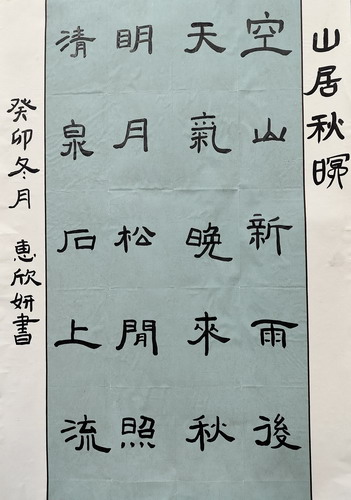 山居秋暝
空山新雨後
天氣晚來秋
明月松閒照
清泉石上流
癸卯冬月 惠欣妍書